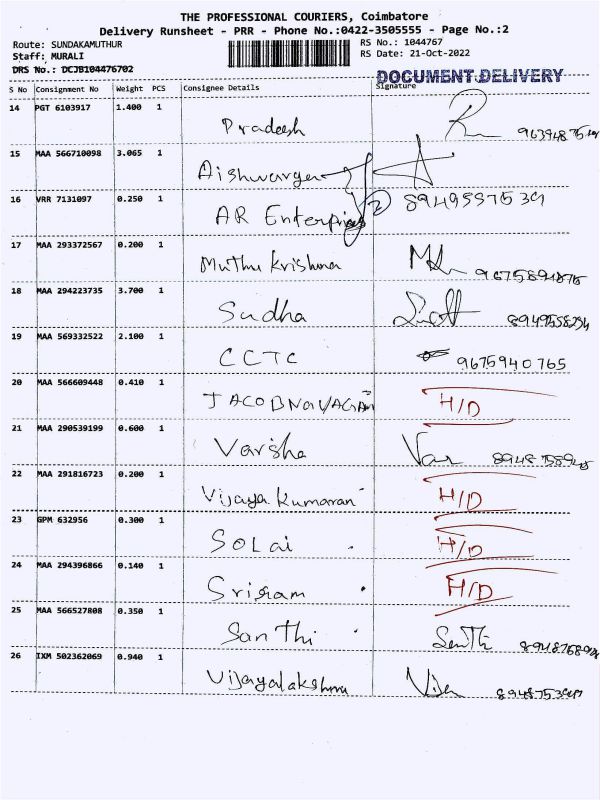 THE PROFESSIONAL COURIERS, Coimbatore
Delivery Runsheet - PRR - Phone No.:0422-3505555 - Page No.:2
Route: SUNDAKAMUTHUR RS No.: 1044767
Staff: MURALI RS Date: 21-Oct-2022
DRS No.: DCJB104476702 DOCUMENT DELIVERY
S No Consignment No Weight PCS Consignee Details Signature
14 PGT 6103917 1.400 1
Pradeesh
15 MAA 566710098 3.065 1
Aishwarya
16 VRR 7131097 0.250 1
AR Enterprises 2
17 MAA 293372567 0.200 1
Muthu Krishna
18 MAA 294223735 3.700 1
Sudha
19 MAA 569332522 2.100 1
CCTC 9675940765
20 MAA 566609448 0.410 1
H/D
21 MAA 290539199 0.600 1
Varsha Var
22 MAA 291816723 0.200 1
Vijaya Kumaran H/D
23 GPM 632956 0.300 1
SOLai H/D
24 MAA 294396866 0.140 1
Sriram H/D
25 MAA 566527808 0.350 1
Santhi
26 IXM 502362069 0.940 1
Vijayalakshmi